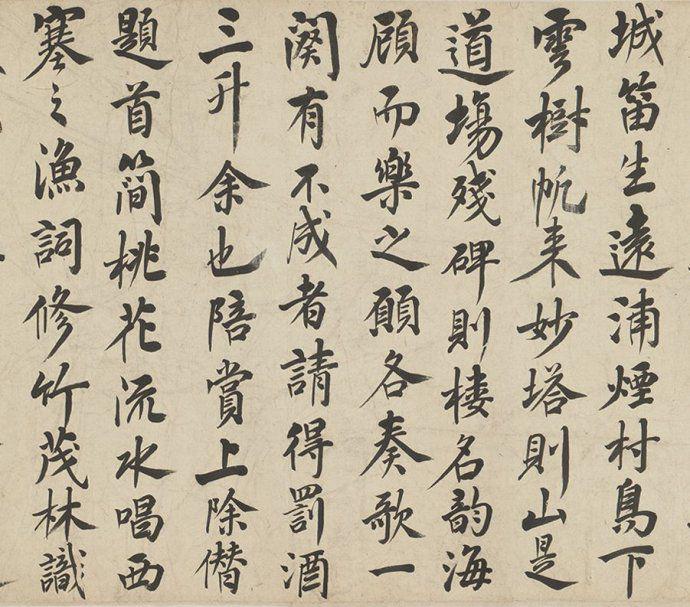 城笛生遠浦煙村鳥下
雲樹帆来妙塔則山是
道場殘碑則樓名韵海
顧而樂之願各奏歌一
闋有不成者請得罰酒
三升余也陪賞上除僭
題首簡桃花流水唱西
塞之漁詞修竹茂林識